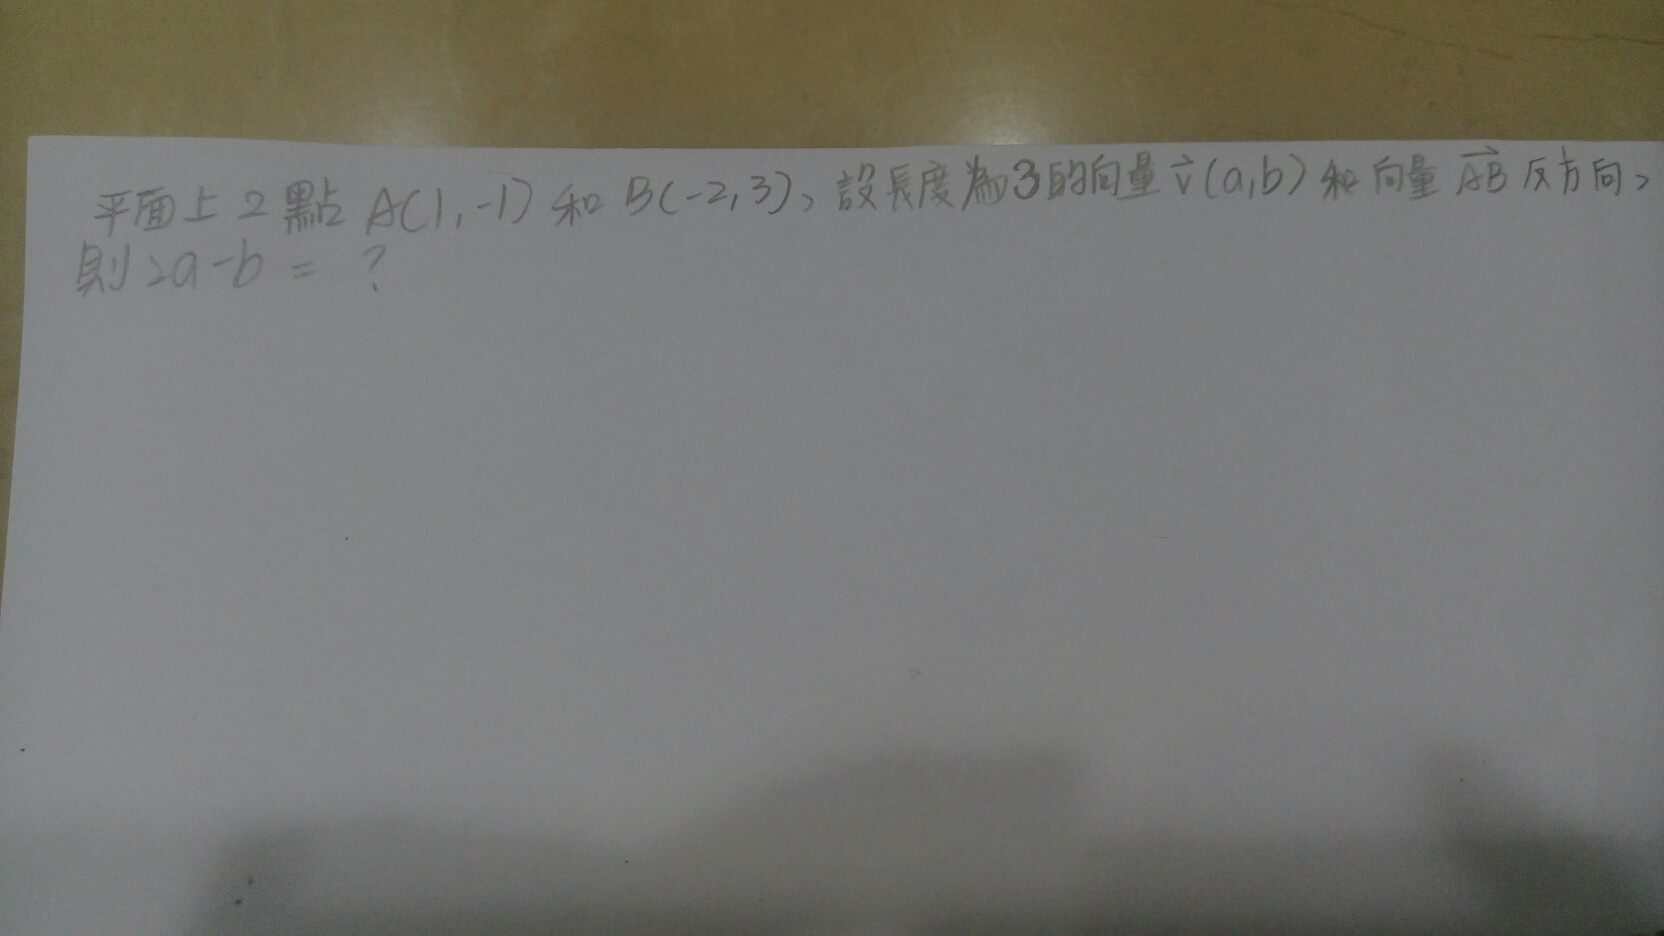 平面上2點A(1,-1)和B(-2,3)，設長度為3的向量v⃗(a,b)和向量AB⃗反方向，
則2a-b = ?